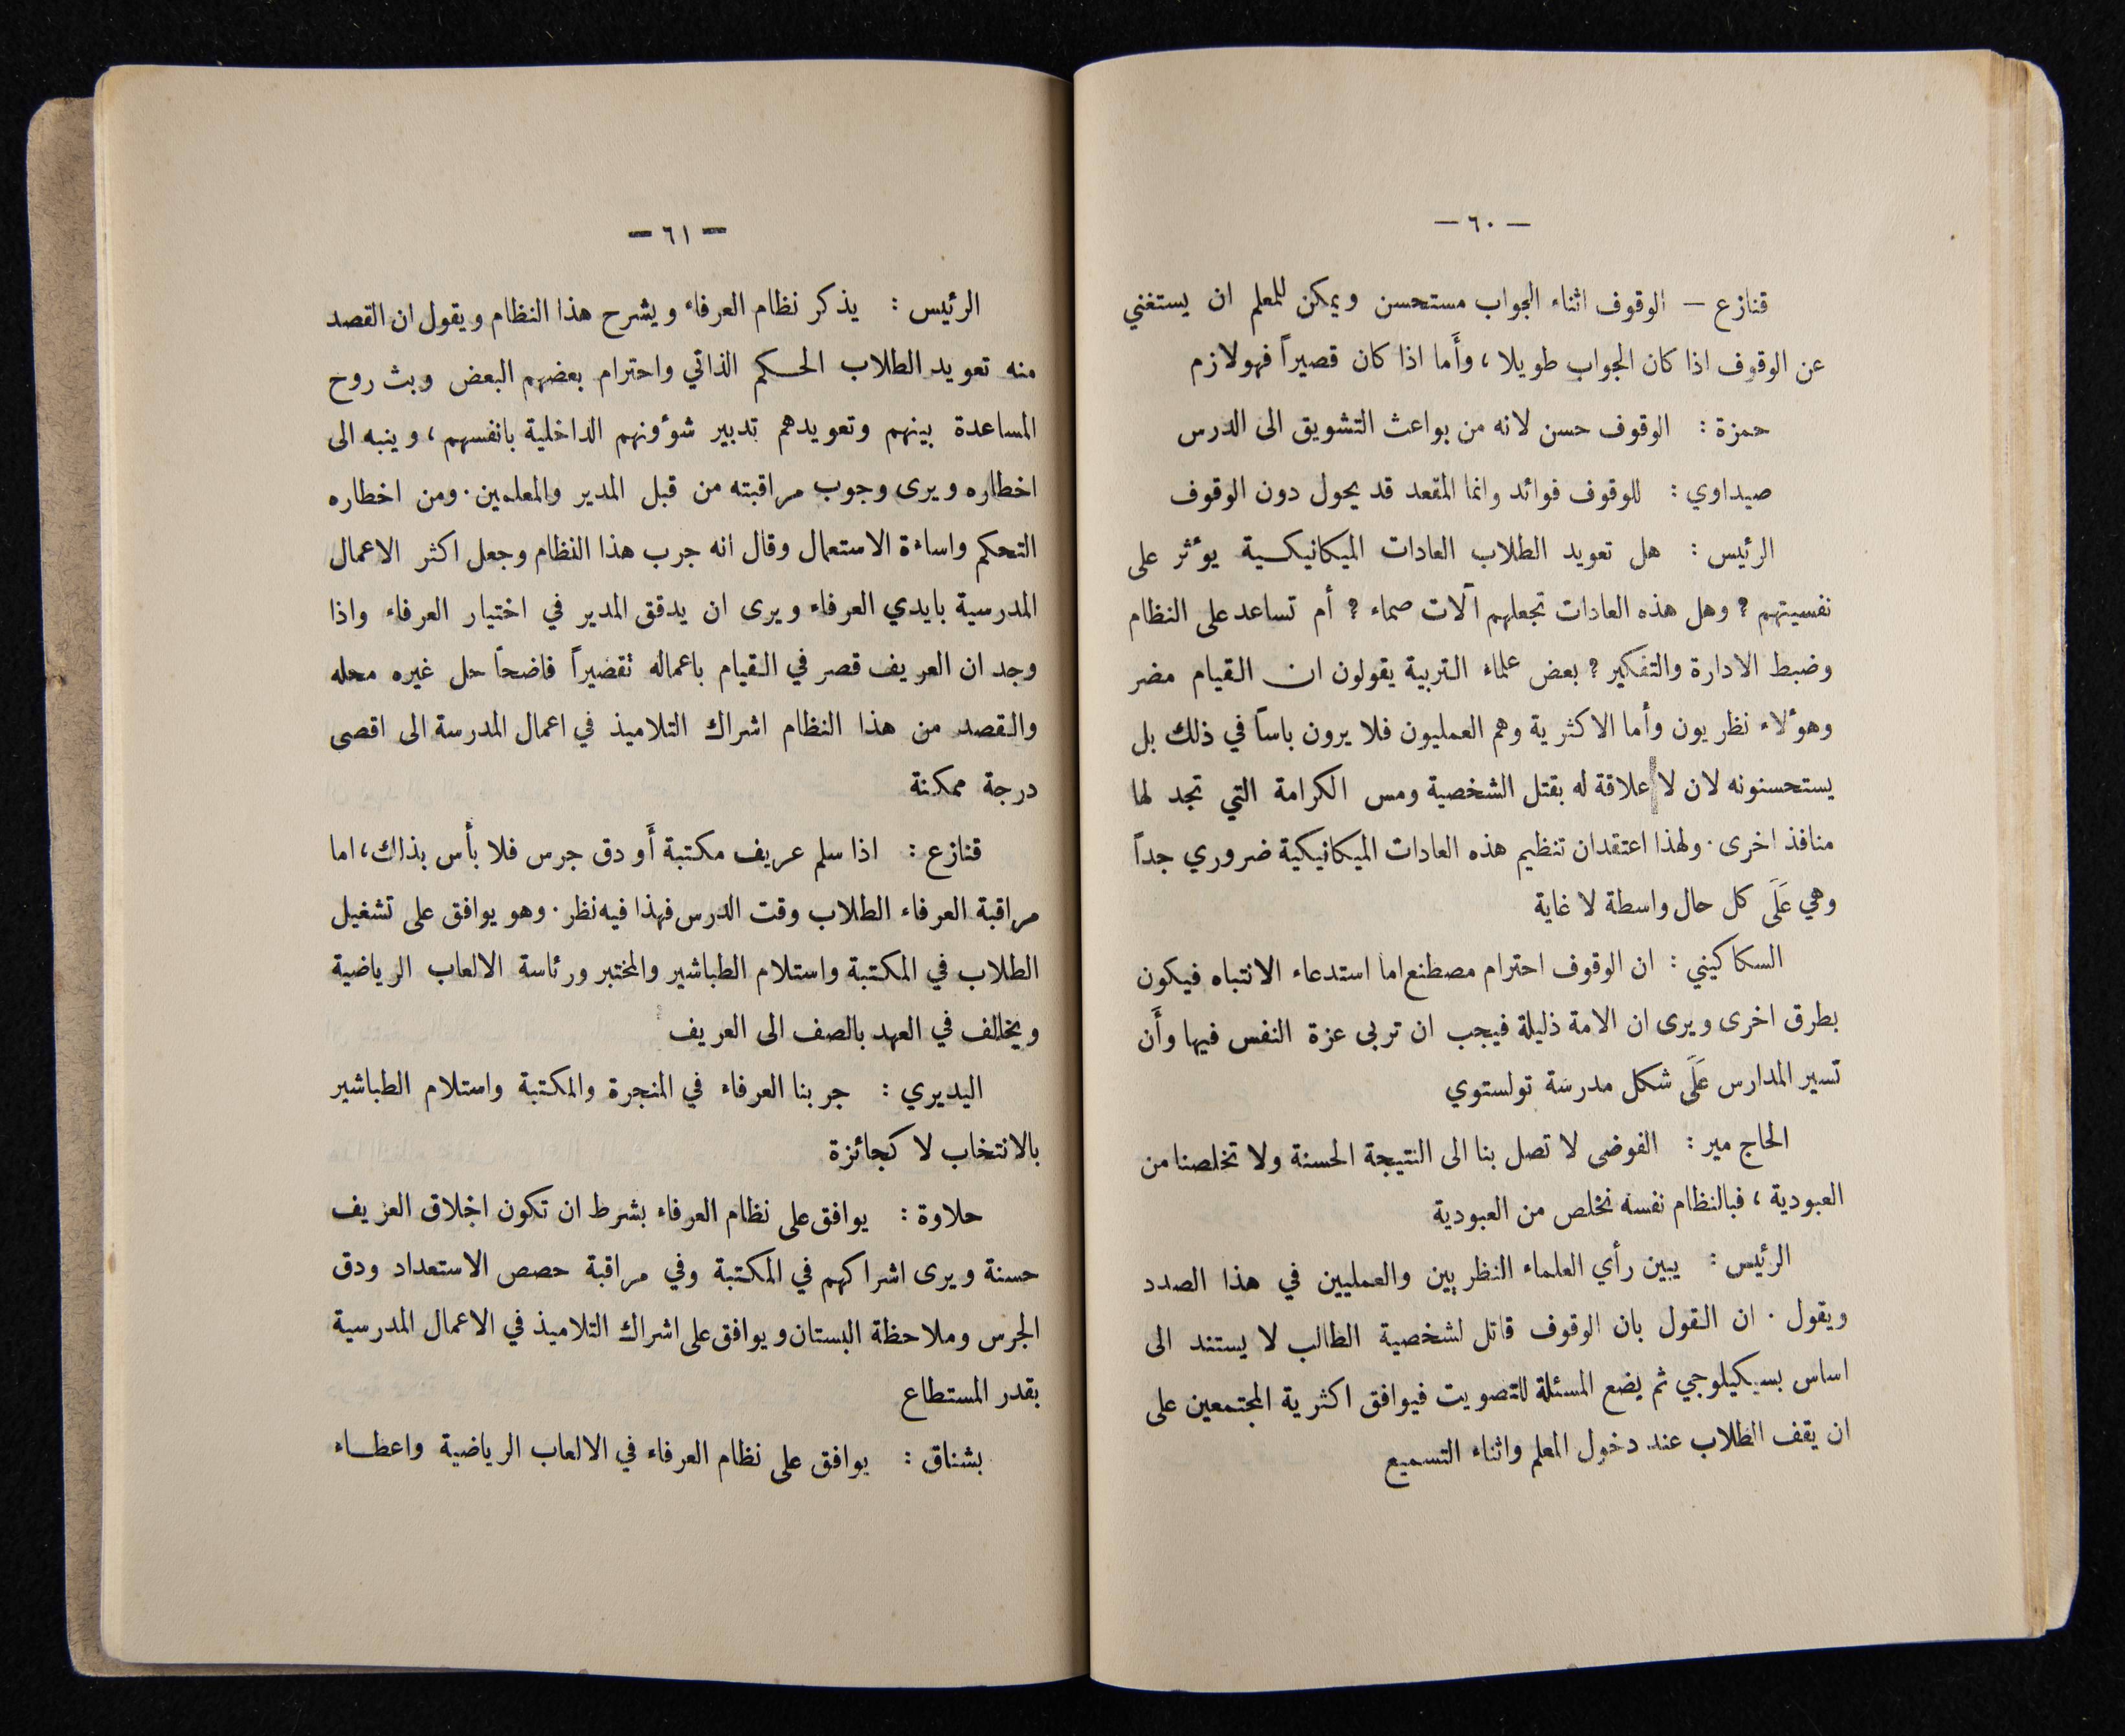 — ٦٠ —
قنازع — الوقوف اثناء الجواب مستحسن ويمكن للمعلم ان يستغني
عن الوقوف اذا كان الجواب طويلا ، وأَما اذا كان قصيراً فهو لازم
حمزة : الوقوف حسن لانه من بواعث التشويق الى الدرس
صيداوي : للوقوف فوائد وانما المقعد قد يحول دون الوقوف
الرئيس : هل تعويد الطلاب العادات الميكانيكية يؤثر على
نفسيتهم ? وهل هذه العادات تجعلهم آلات صماء ? أم تساعد على النظام
وضبط الادارة والتفكير ? بعض علماء التربية يقولون ان القيام مضر
وهؤلاء نظريون وأما الاكثرية وهم العمليون فلا يرون باساً في ذلك بل
يستحسنونه لان لا علاقة له بقتل الشخصية ومس الكرامة التي تجد لها
منافذ اخرى . ولهذا اعتقد ان تنظيم هذه العادات الميكانيكية ضروري جداً
وهي عَلَى كل حال واسطة لا غاية
السكاكيني : ان الوقوف احترام مصطنع اما استدعاء الانتباه فيكون
بطرق اخرى ويرى ان الامة ذليلة فيجب ان تربى عزة النفس فيها وأَن
تسير المدارس عَلَى شكل مدرسة تولستوي
الحاج مير : الفوضى لا تصل بنا الى النتيجة الحسنة ولا تخلصنا من
العبودية ، فبالنظام نفسه نخلص من العبودية
الرئيس : يبين رأي العلماء النظريين والعمليين في هذا الصدد
ويقول . ان القول بان الوقوف قاتل لشخصية الطالب لا يستند الى
اساس بسيكيلوجي ثم يضع المسئلة للتصويت فيوافق اكثرية المجتمعين على
ان يقف الطلاب عند دخول المعلم واثناء التسميع
— ٦١ —
الرئيس : يذكر نظام العرفاء ويشرح هذا النظام ويقول ان القصد
منه تعويد الطلاب الحكم الذاتي واحترام بعضهم البعض وبث روح
المساعدة بينهم وتعويدهم تدبير شؤونهم الداخلية بانفسهم ، وينبه الى
اخطاره ويرى وجوب مراقبته من قبل المدير والمعلمين . ومن اخطاره
التحكم واساءة الاستعمال وقال انه جرب هذا النظام وجعل اكثر الاعمال
المدرسية بايدي العرفاء ويرى ان يدقق المدير في اختيار العرفاء واذا
وجد ان العريف قصر في القيام باعماله تقصيراً فاضحاً حل غيره محله
والقصد من هذا النظام اشراك التلاميذ في اعمال المدرسة الى اقصى
درجة ممكنة
قنازع : اذا سلم عريف مكتبة أَو دق جرس فلا بأس بذلك ، اما
مراقبة العرفاء الطلاب وقت الدرس فهذا فيه نظر . وهو يوافق على تشغيل
الطلاب في المكتبة واستلام الطباشير والمختبر ورئاسة الالعاب الرياضية
ويخالف في العهد بالصف الى العريف
اليديري : جربنا العرفاء في المنجرة والمكتبة واستلام الطباشير
بالانتخاب لا كجائزة
حلاوة : يوافق على نظام العرفاء بشرط ان تكون اخلاق العريف
حسنة ويرى اشراكهم في المكتبة وفي مراقبة حصص الاستعداد ودق
الجرس وملاحظة البستان ويوافق على اشراك التلاميذ في الاعمال المدرسية
بقدر المستطاع
بشناق : يوافق على نظام العرفاء في الالعاب الرياضية واعطاء